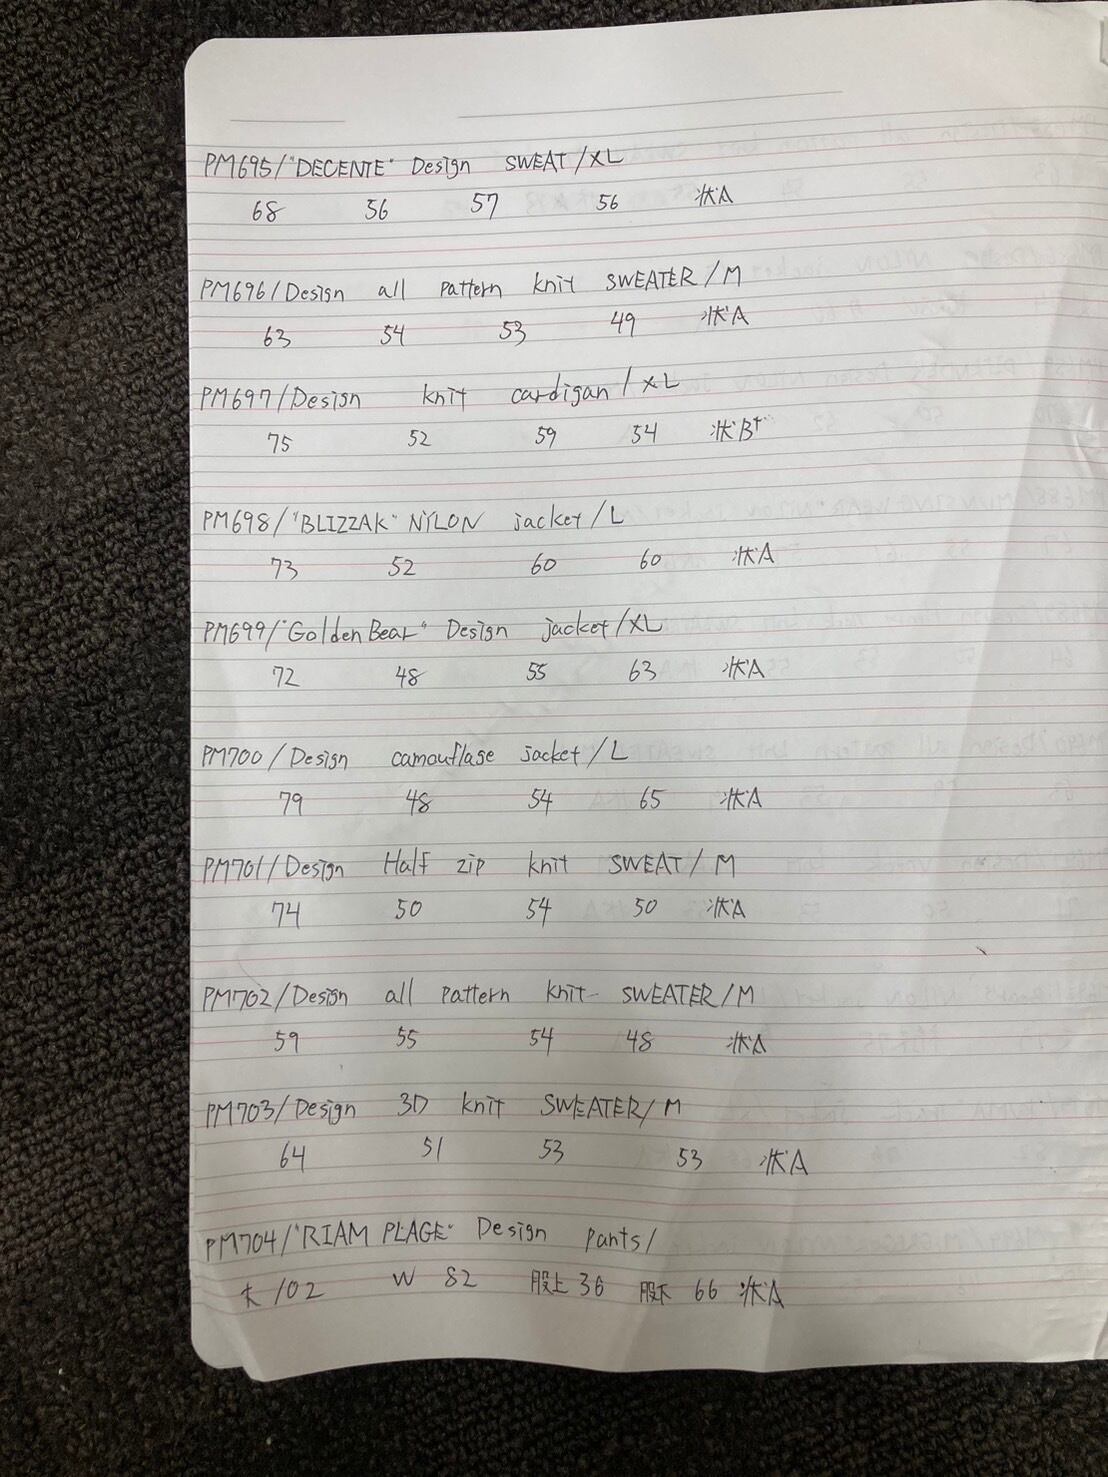 PM695/"DECENTE" Design SWEAT/XL
68 56 57 56 状A
PM696/Design all pattern knit SWEATER/M
63 54 53 49 状A
PM697/Design knit cardigan/XL
75 52 59 54 状B+
PM698/"BLIZZAK" NYLON jacket/L
73 52 60 60 状A
PM699/"Golden Bear" Design jacket/XL
72 48 55 63 状A
PM700/Design camouflage jacket/L
79 48 54 65 状A
PM701/Design Half zip knit SWEAT/M
74 50 54 50 状A
PM702/Design all pattern knit SWEATER/M
59 55 54 48 状A
PM703/Design 3D knit SWEATER/M
64 51 53 53 状A
PM704/"RIAM PLAGE" Design pants/
丈102 W 82 股上36 股下 66 状A